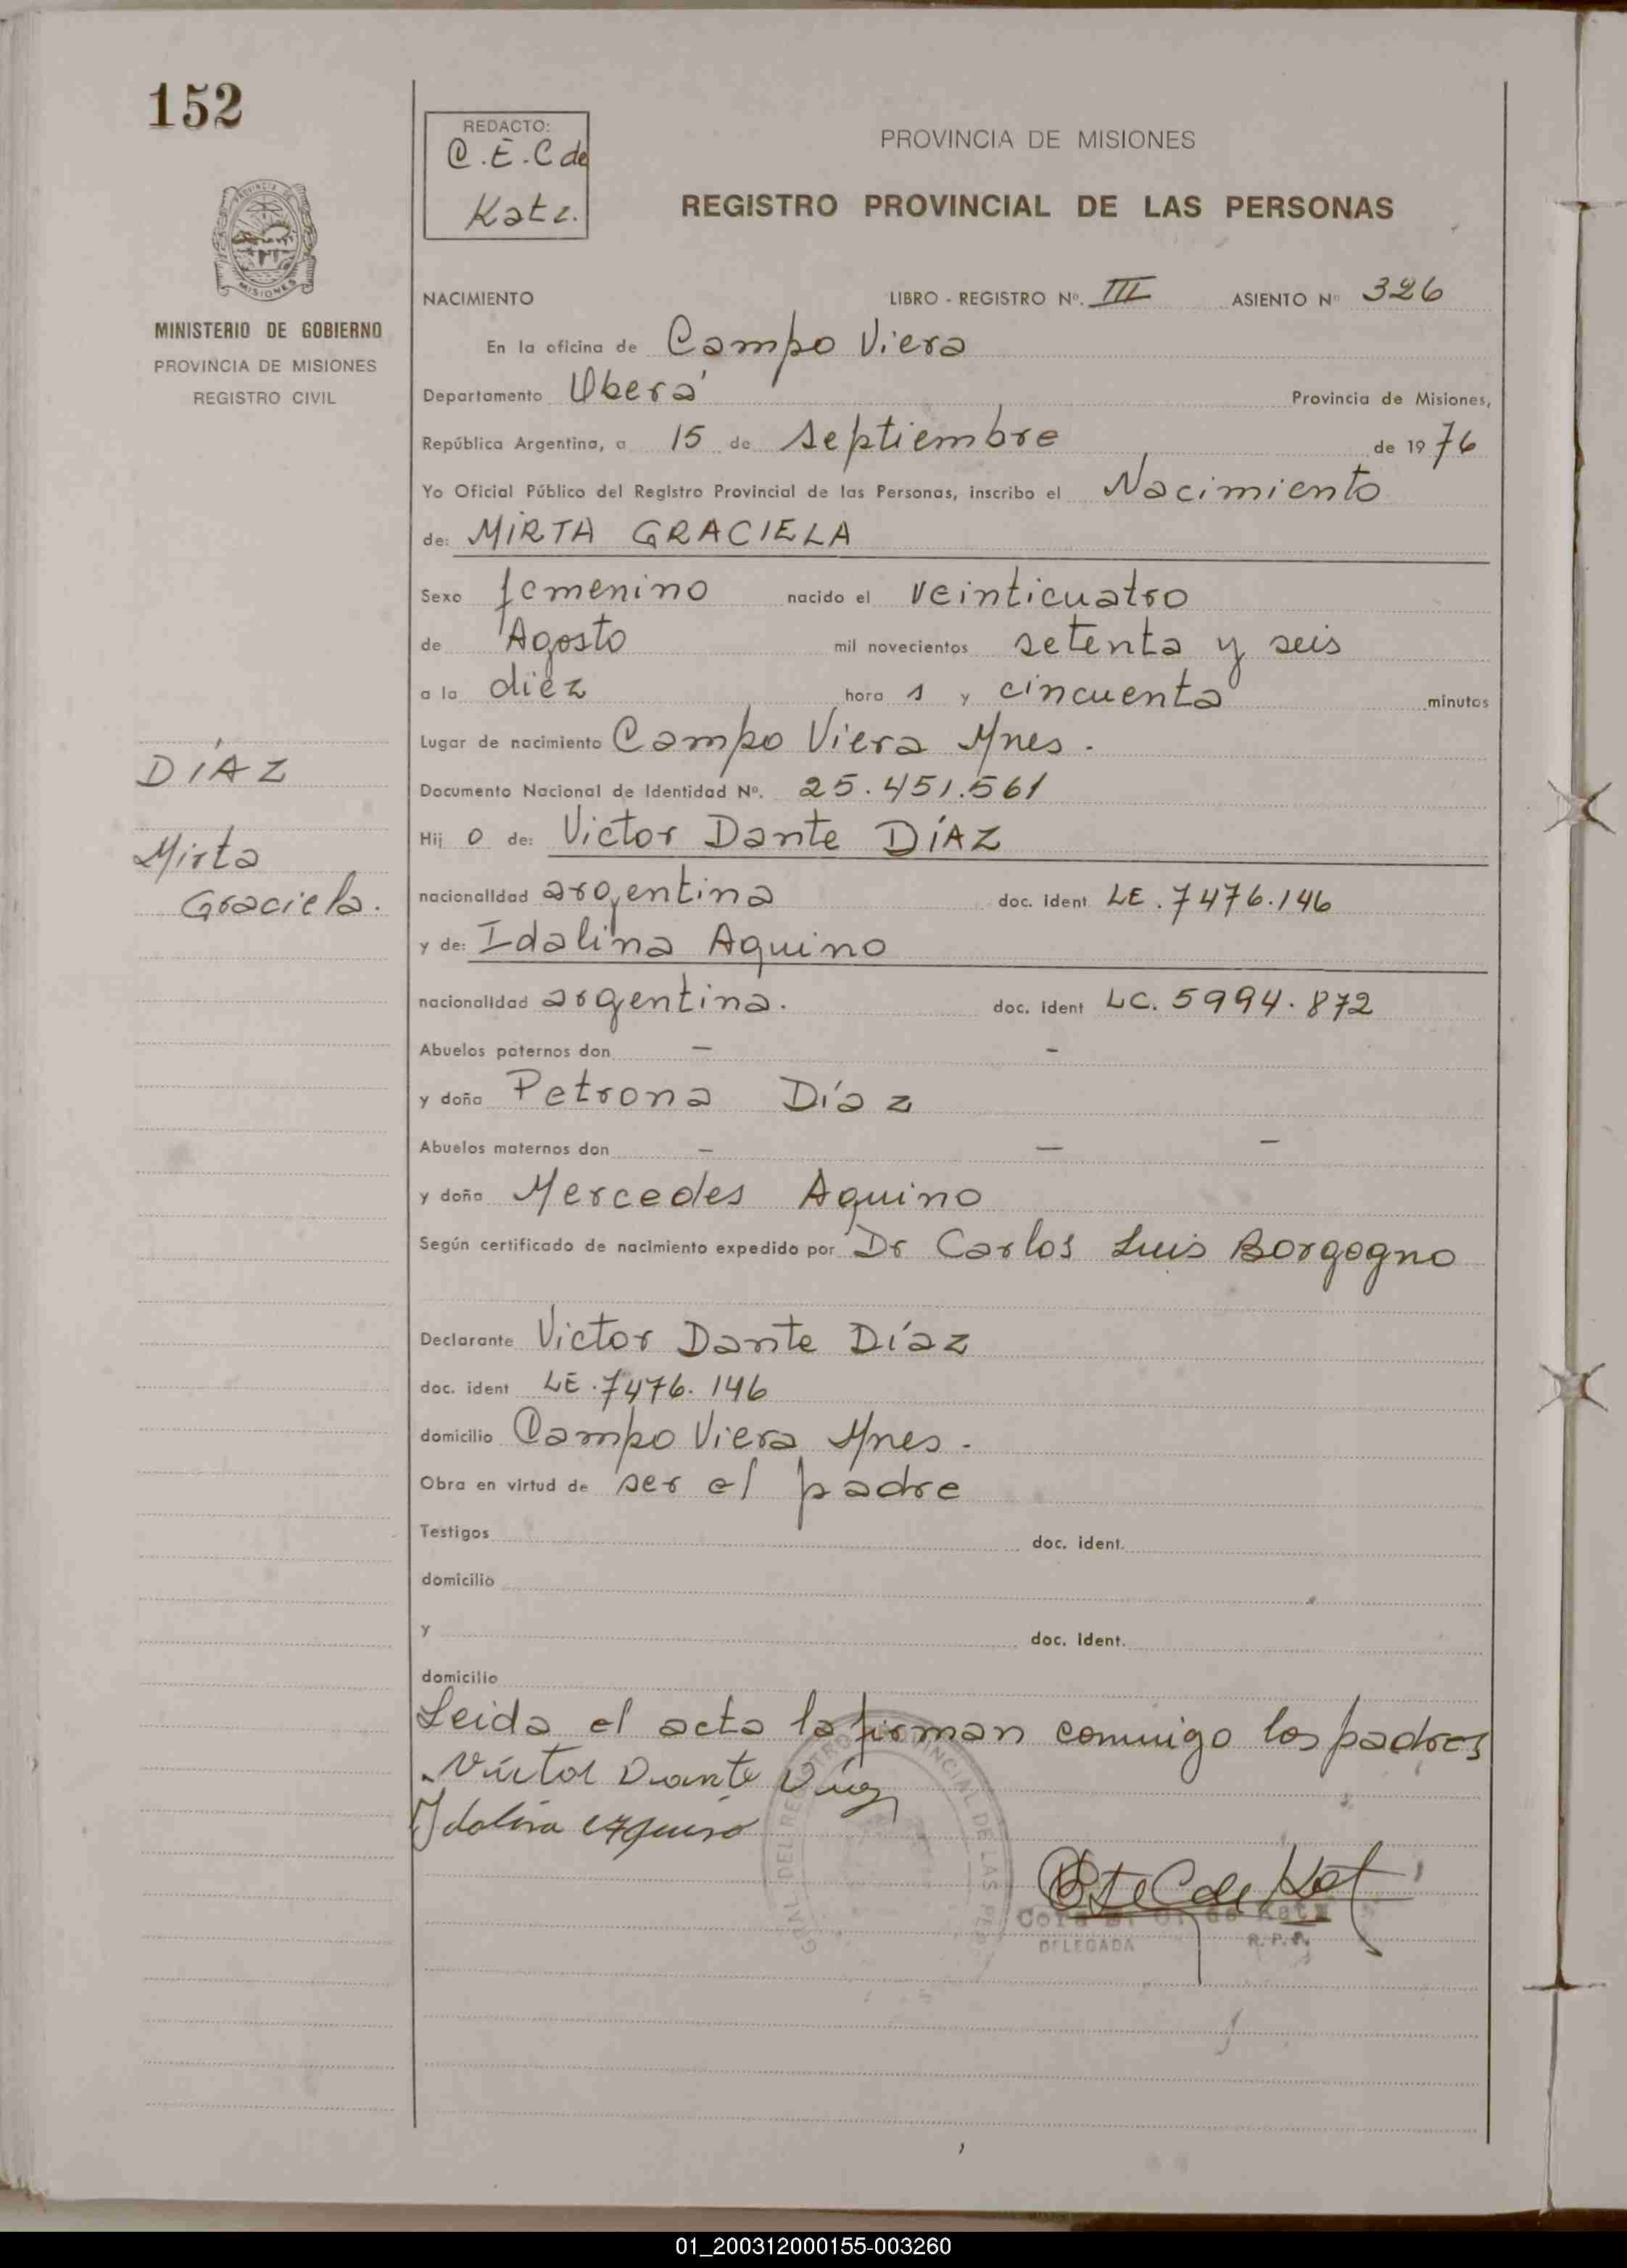 152
REDACTO:
C.E.C de
Katz.
PROVINCIA DE MISIONES
REGISTRO PROVINCIAL DE LAS PERSONAS
MISIONES
MINISTERIO DE GOBIERNO
PROVINCIA DE MISIONES
REGISTRO CIVIL
NACIMIENTO LIBRO - REGISTRO Nº. III ASIENTO Nº 326
En la oficina de Campo Viera
Departamento Oberá Provincia de Misiones,
República Argentina, a 15 de septiembre de 1976
Yo Oficial Público del Registro Provincial de las Personas, inscribo el Nacimiento
de: MIRTA GRACIELA
Sexo femenino nacido el veinticuatro
de Agosto mil novecientos setenta y seis
a la diez hora s y cincuenta minutos
Lugar de nacimiento Campo Viera Mnes.
DÍAZ
Mirta
Graciela.
Documento Nacional de Identidad Nº. 25.451.561
Hij o de: Victor Dante DÍAZ
nacionalidad argentina doc. ident LE. 7476.146
y de: Idalina Aquino
nacionalidad argentina. doc. ident LC. 5994.872
Abuelos paternos don — -
y doña Petrona Díaz
Abuelos maternos don — — —
y doña Mercedes Aquino
Según certificado de nacimiento expedido por Dr Carlos Luis Borgogno
Declarante Victor Dante Díaz
doc. ident LE.7476.146
domicilio Campo Viera Mnes.
Obra en virtud de ser el padre
Testigos doc. ident.
domicilio
y doc. ident.
domicilio
Leida el acta la firman conmigo los padres
Víctor Dante Díaz
Idalina Aquino
C. E. C de Katz
DELEGADA R. P. P.
01_200312000155-003260